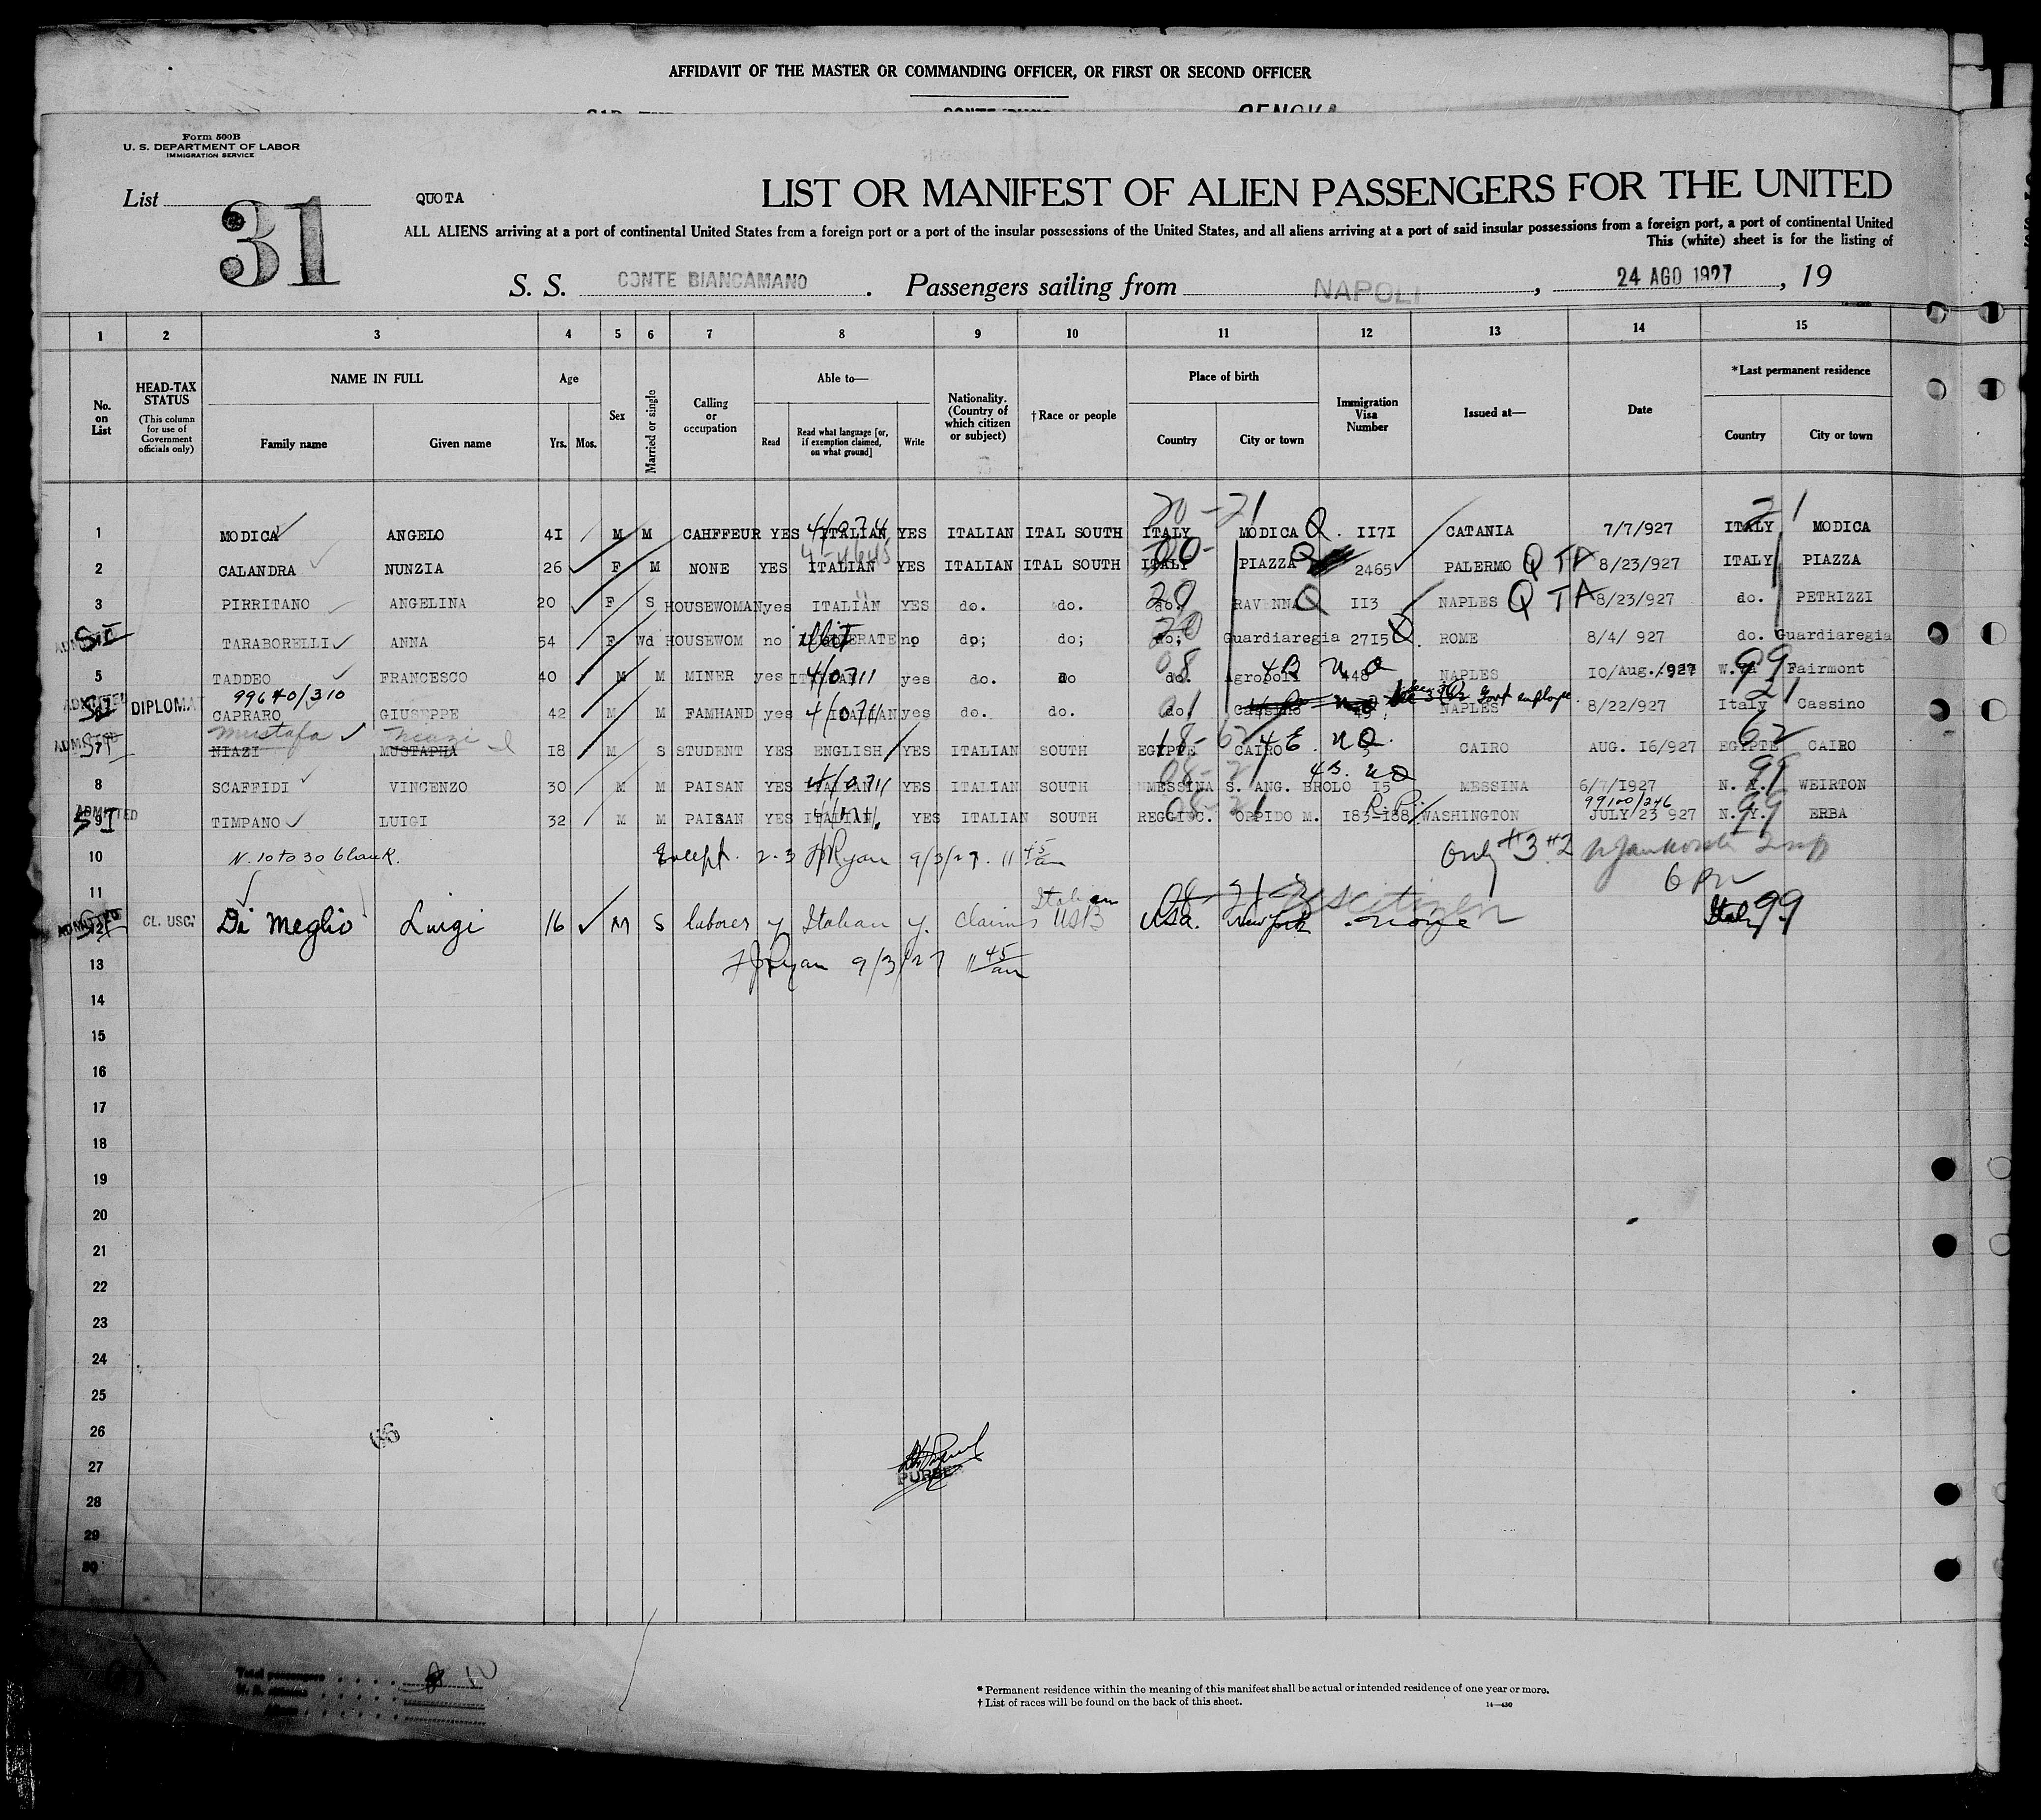 AFFIDAVIT OF THE MASTER OR COMMANDING OFFICER, OR FIRST OR SECOND OFFICER
Form 500B
U. S. DEPARTMENT OF LABOR
IMMIGRATION SERVICE
List 31
QUOTA
LIST OR MANIFEST OF ALIEN PASSENGERS FOR THE UNITED
ALL ALIENS arriving at a port of continental United States from a foreign port or a port of the insular possessions of the United States, and all aliens arriving at a port of said insular possessions from a foreign port, a port of continental United
This (white) sheet is for the listing of
S. S. CONTE BIANCAMANO. Passengers sailing from NAPOLI, 24 AGO 1927, 19
1 2 3 4 5 6 7 8 9 10 11 12 13 14 15
No. on List
HEAD-TAX STATUS
(This column for use of Government officials only)
NAME IN FULL
Family name Given name
Age
Yrs. Mos.
Sex
Married or single
Calling or occupation
Able to—
Read
Read what language [or, if exemption claimed, on what ground]
Write
Nationality. (Country of which citizen or subject)
†Race or people
Place of birth
Country City or town
Immigration Visa Number
Issued at—
Date
*Last permanent residence
Country City or town
20 - 21 21
1 MODICA ANGELO 4I M M CAHFFEUR YES ITALIAN YES ITALIAN ITAL SOUTH ITALY MODICA Q. II7I CATANIA 7/7/927 ITALY MODICA
2 CALANDRA NUNZIA 26 F M NONE YES ITALIAN YES ITALIAN ITAL SOUTH ITALY PIAZZA Q 2465 PALERMO Q TA 8/23/927 ITALY PIAZZA
3 PIRRITANO ANGELINA 20 F S HOUSEWOMAN yes ITALIAN YES do. do. do. RAVENNA Q II3 NAPLES Q TA 8/23/927 do. PETRIZZI
TARABORELLI ANNA 54 F Wd HOUSEWOM no no do; do; do; Guardiaregia 2715 ROME 8/4/ 927 do. Guardiaregia
5 TADDEO FRANCESCO 40 M M MINER yes 4/0711 yes do. do do. Agropoli 448 NAPLES 10/Aug./927 W. Fairmont
99640/310
ADMITTED DIPLOMAT CAPRARO GIUSEPPE 42 M M FAMHAND yes ITALIAN yes do. do. do. Cassino 49 NAPLES 8/22/927 Italy Cassino
Mustafa Niazi
ADMITTED NIAZI MUSTAPHA I8 M S STUDENT YES ENGLISH YES ITALIAN SOUTH EGYPTE CAIRO CAIRO AUG. I6/927 EGYPTE CAIRO
8 SCAFFIDI VINCENZO 30 M M PAISAN YES ITALIAN YES ITALIAN SOUTH MESSINA S. ANG. BROLO I5 MESSINA 6/7/I927 N. Y. WEIRTON
99100/246
ADMITTED TIMPANO LUIGI 32 M M PAISAN YES ITALIAN YES ITALIAN SOUTH REGGIO C. OPPIDO M. I83-I88 WASHINGTON JULY 23 927 N. Y. ERBA
10 N. 10 to 30 blank. Except. 2-3 Ryan 9/3/27. 11 45 am Only #3 #2
6 PM
11
Italian
ADMITTED CL. USC. Di Meglio Luigi 16 M S laborer y Italian y. claims USB USA. New York none US citizen Italy 99
13 FJ Ryan 9/3/27 11 45 am
14
15
16
17
18
19
20
21
22
23
24
25
26
27
PURSER
28
29
30
Total passengers
U. S. citizens
Aliens
10
* Permanent residence within the meaning of this manifest shall be actual or intended residence of one year or more.
† List of races will be found on the back of this sheet.
14—430